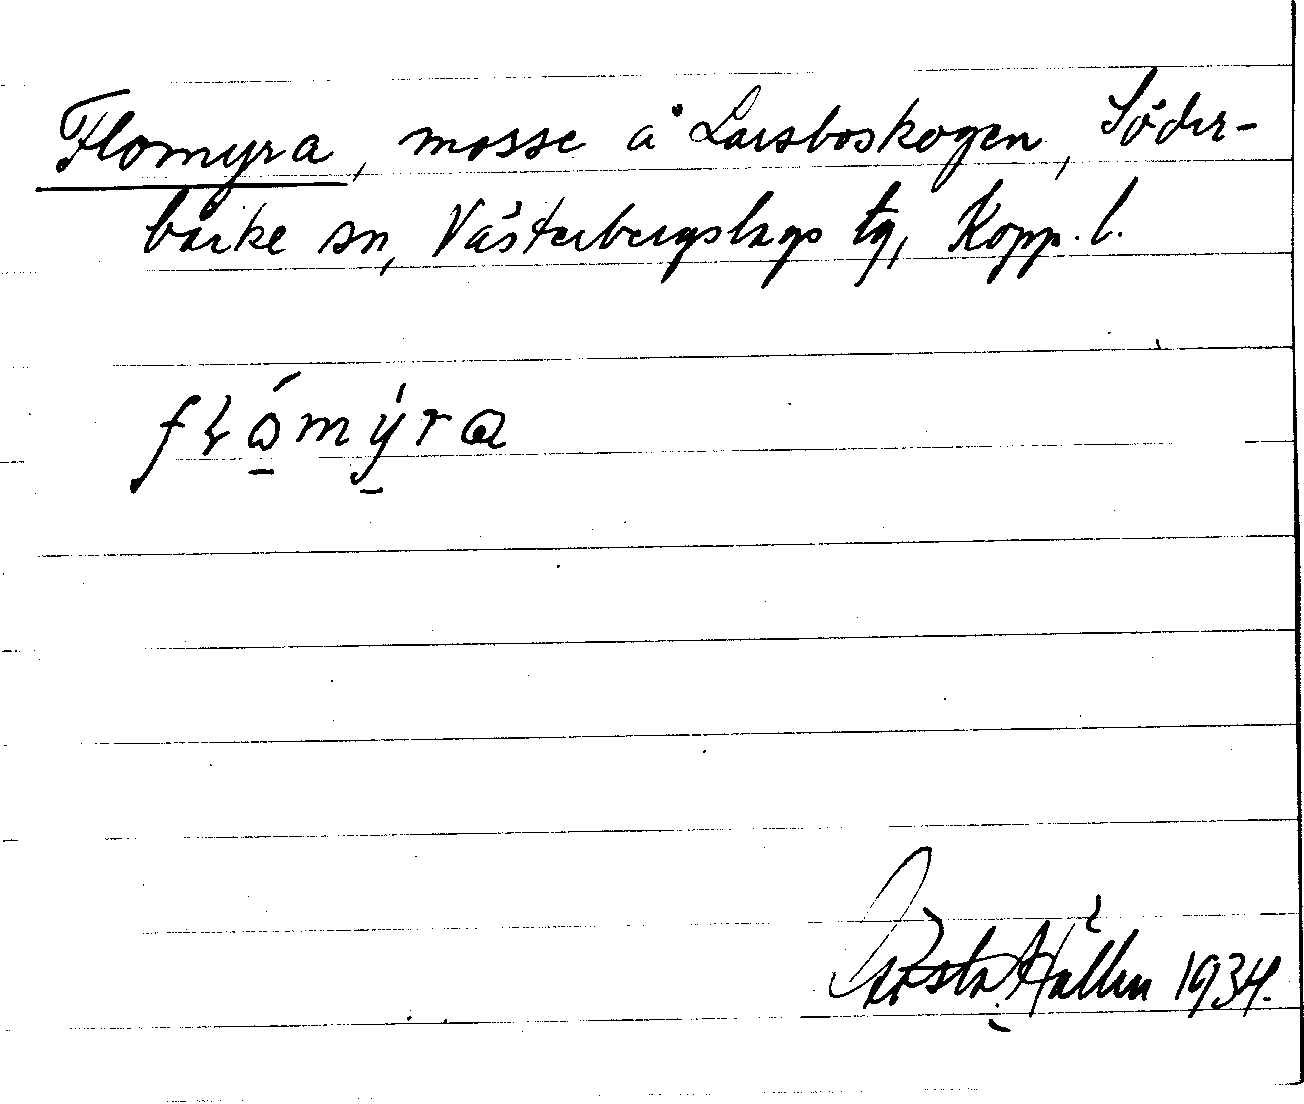 Flomyra, mosse å Larsboskogen, Söder-
bärke sn, Västerbergslags tg, Kopp. l.
fɫǫ́mý̱ra
Gösta Hållén 1934.